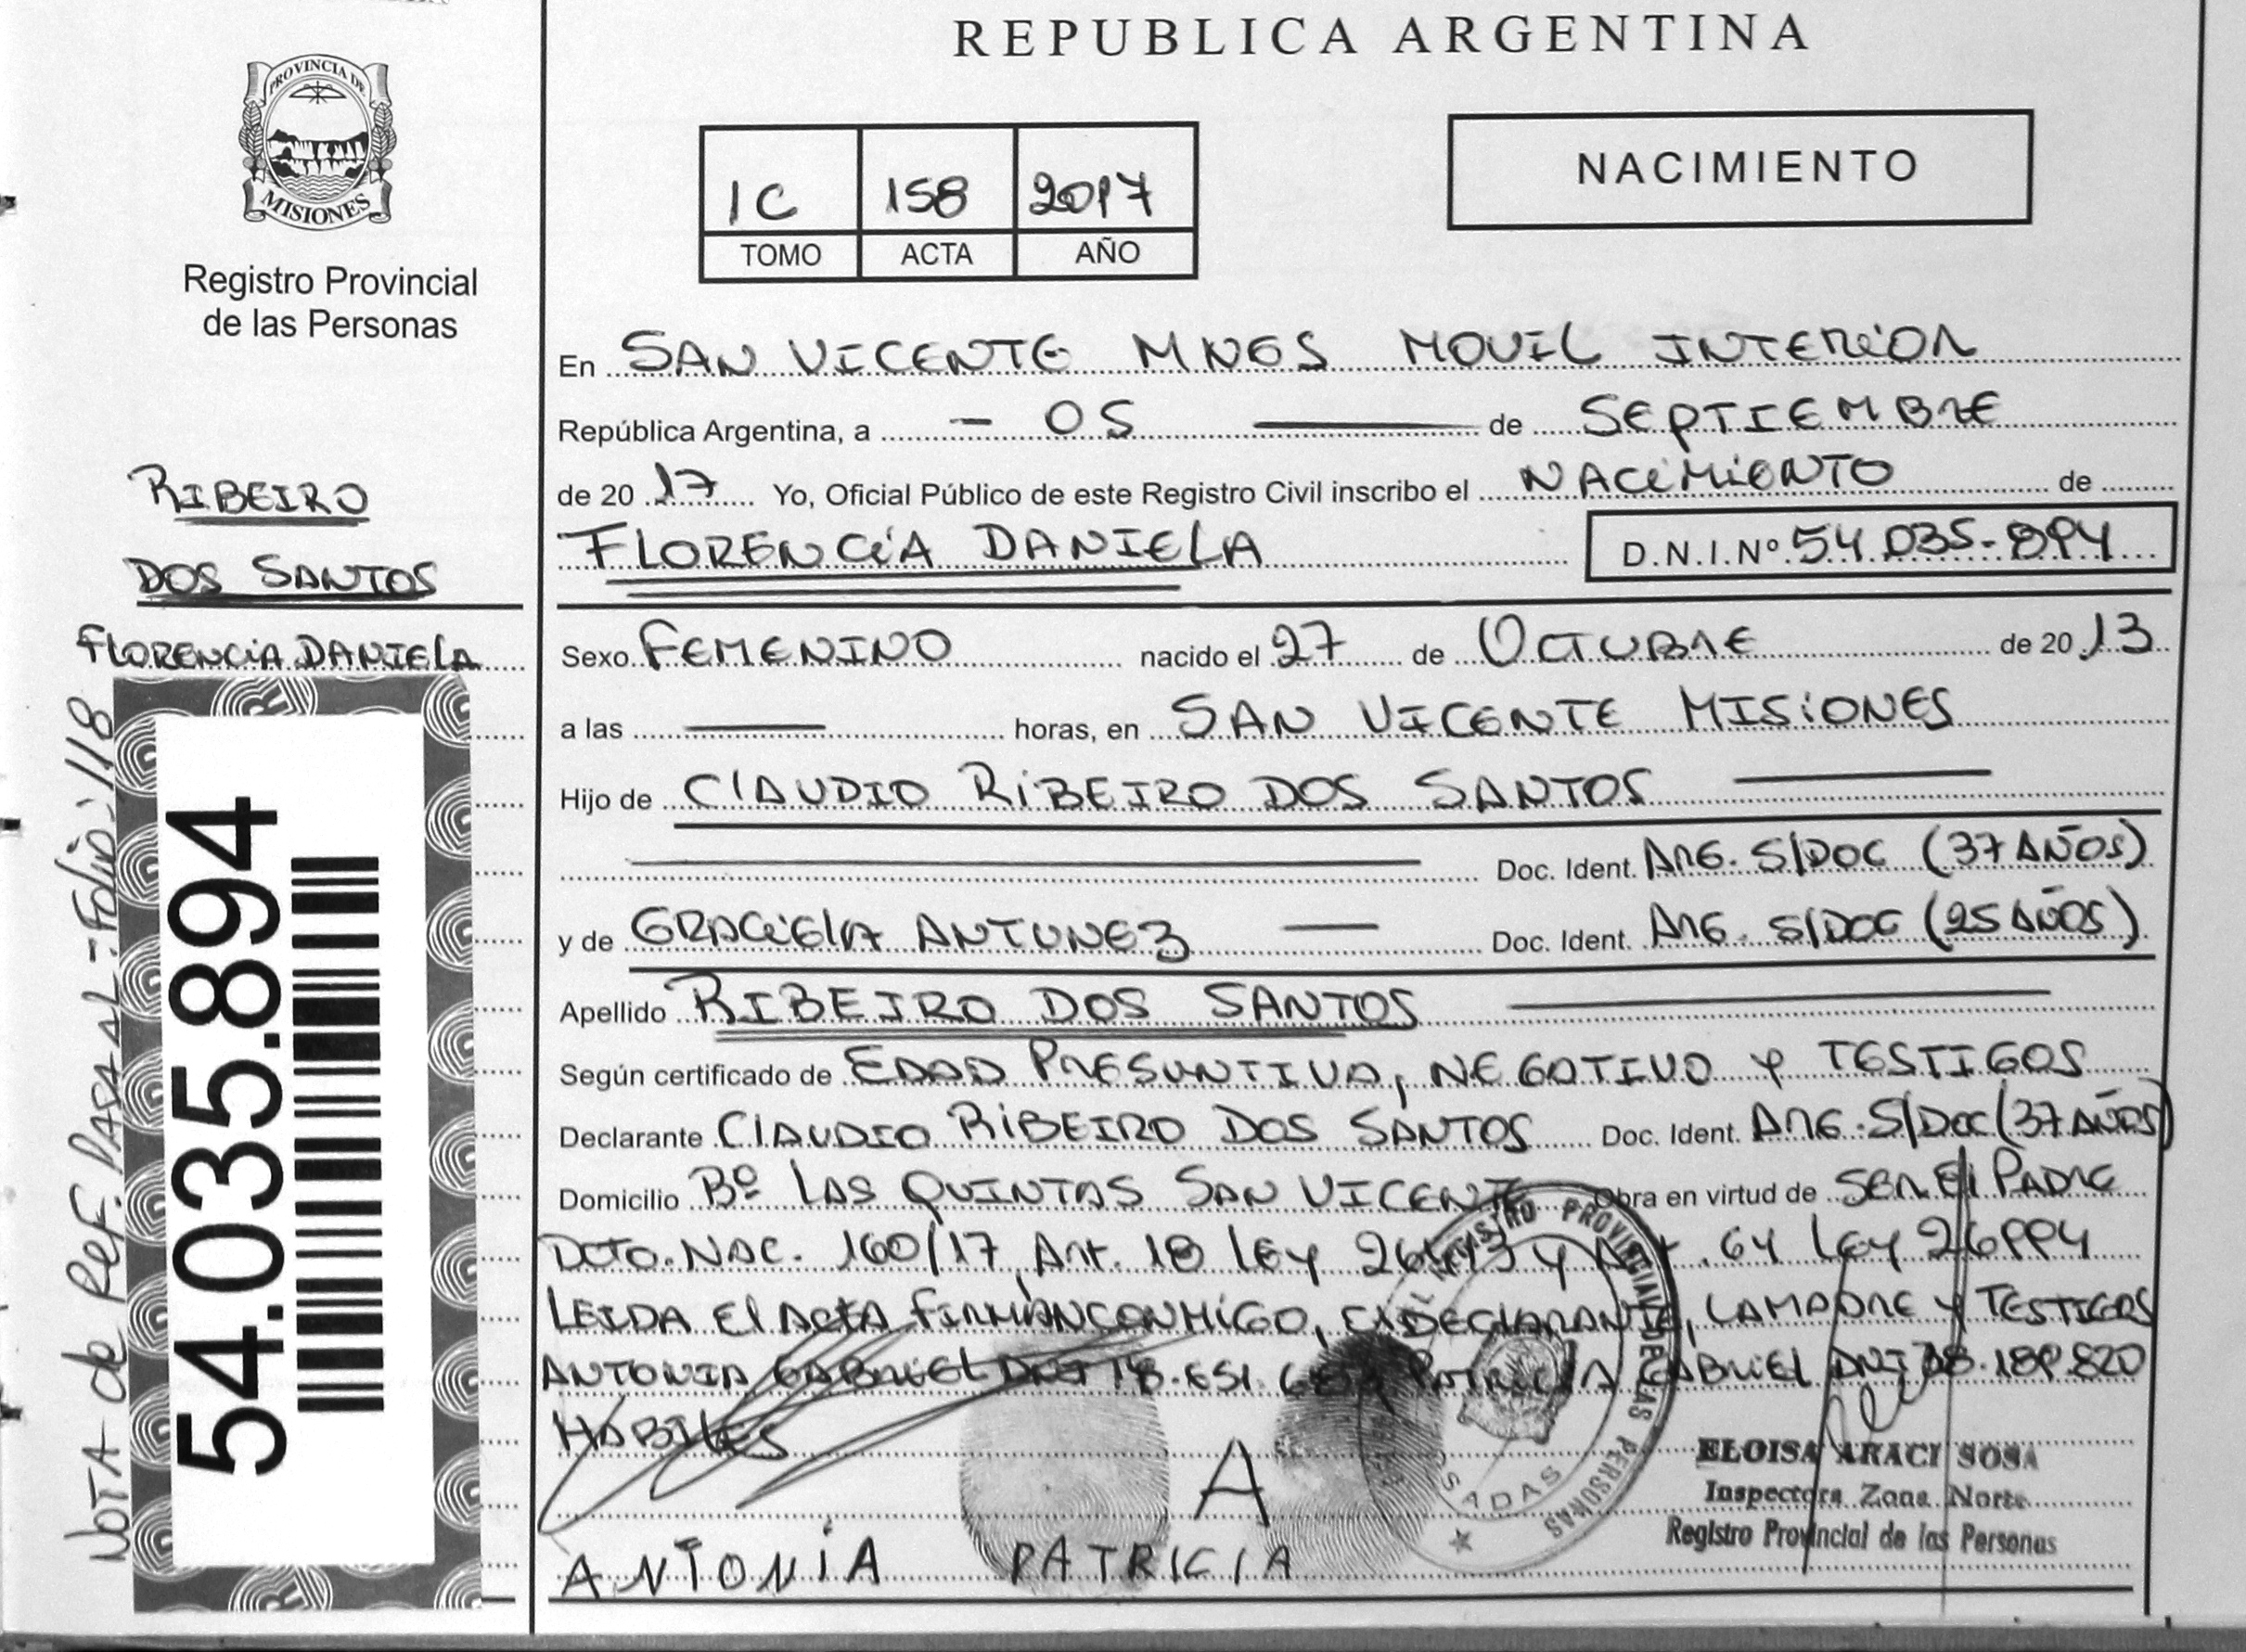 REPUBLICA ARGENTINA
PROVINCIA DE
MISIONES
Registro Provincial
de las Personas
NACIMIENTO
1C 158 2017
TOMO ACTA AÑO
En SAN VICENTE MNES MOVIL INTERIOR
República Argentina, a - 05 de SEPTIEMBRE
de 20 17 Yo, Oficial Público de este Registro Civil inscribo el NACIMIENTO de
FLORENCIA DANIELA D.N.I.Nº 54.035.894
RIBEIRO
DOS SANTOS
FLORENCIA DANIELA
Sexo FEMENINO nacido el 27 de OCTUBRE de 20 13
a las horas, en SAN VICENTE MISIONES
Hijo de CLAUDIO RIBEIRO DOS SANTOS
Doc. Ident. ARG. S/DOC (37 AÑOS)
y de GRACIELA ANTUNEZ Doc. Ident. ARG. S/DOC (25 AÑOS)
Apellido RIBEIRO DOS SANTOS
Según certificado de EDAD PRESUNTIVA, NEGATIVO Y TESTIGOS
Declarante CLAUDIO RIBEIRO DOS SANTOS Doc. Ident. ARG. S/DOC (37 AÑOS)
Domicilio Bº LAS QUINTAS SAN VICENTE Obra en virtud de SER EL PADRE
DCTO. NAC. 160/17, Art. 18 LEY 26413 Y Art. 64 LEY 26994
LEIDA El ACTA FIRMAN CONMIGO, El DECLARANTE, LA MADRE Y TESTIGOS
ANTONIA GABRIEL DNI PATRICIA GABRIEL DNI 38.189.820
HABILES
A
ANTONIA PATRICIA
REGISTRO PROVINCIAL DE LAS PERSONAS
ELOISA ARACI SOSA
Inspectora Zona Norte
Registro Provincial de las Personas
54.035.894
NOTA de Ref. PASA AL Folio: 118